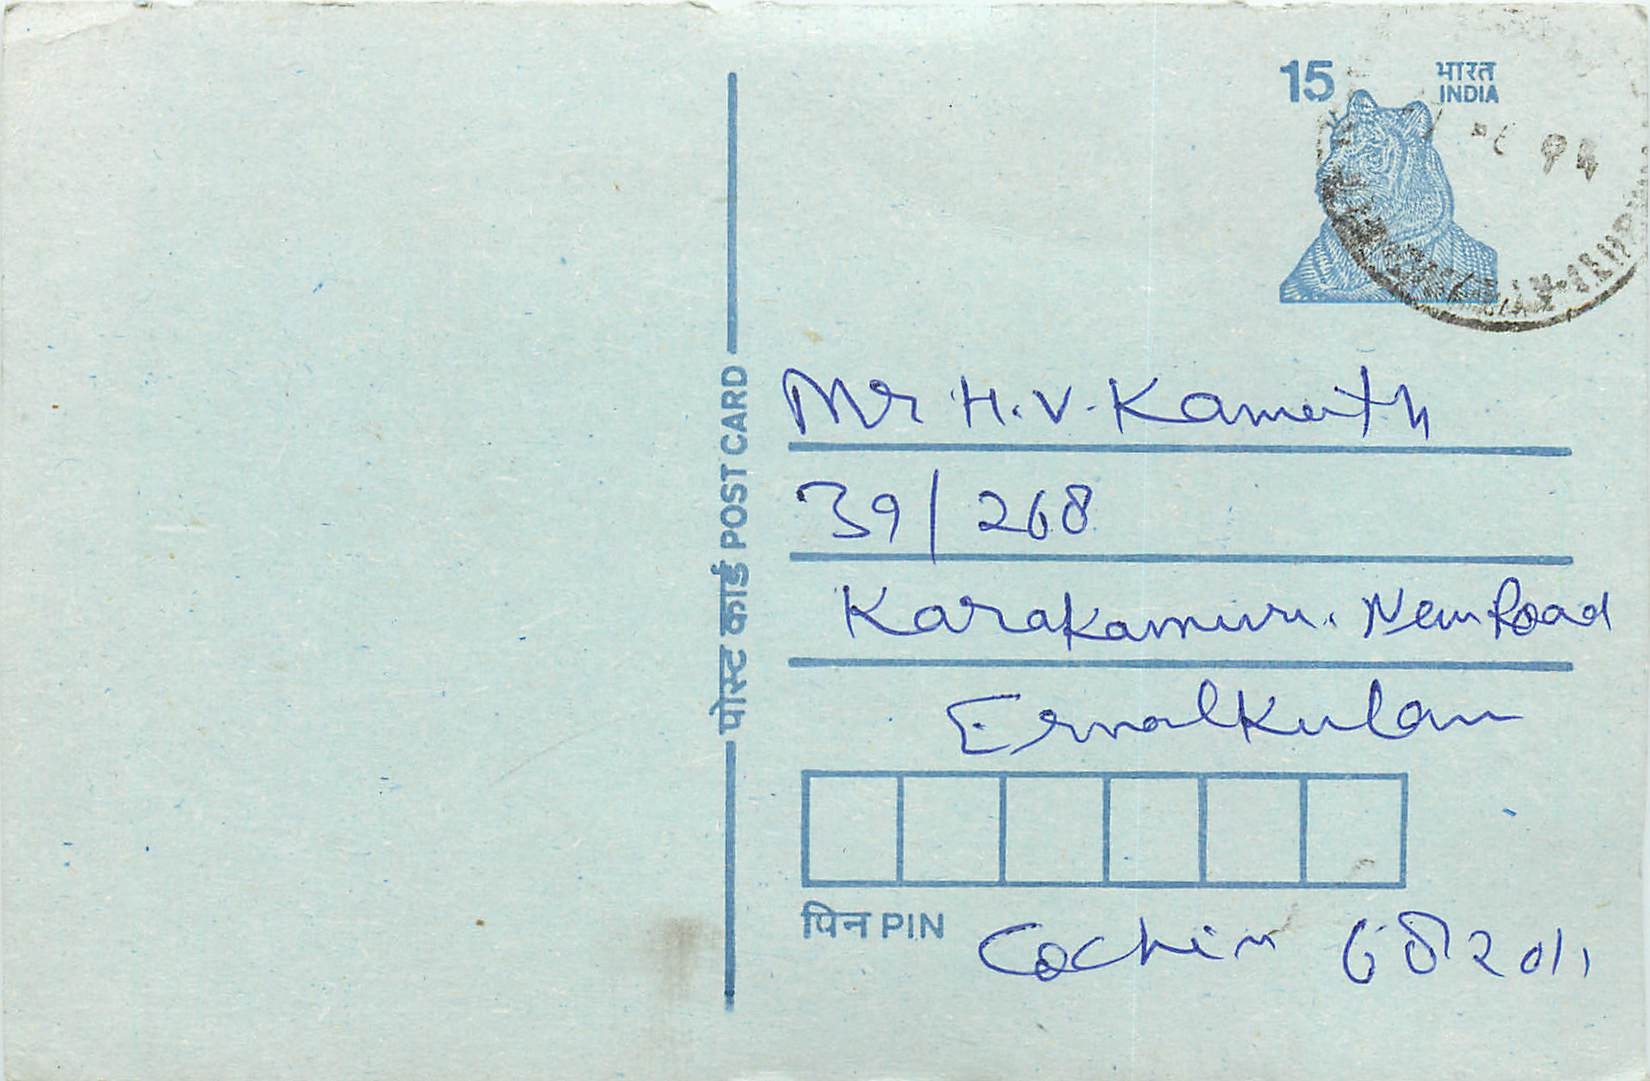 15 भारत
INDIA
94
पोस्ट कार्ड POST CARD
Mr H. V. Kamath
39/268
Karakamuri. New Road
Ernalkulam
पिन PIN
Cochin 682011